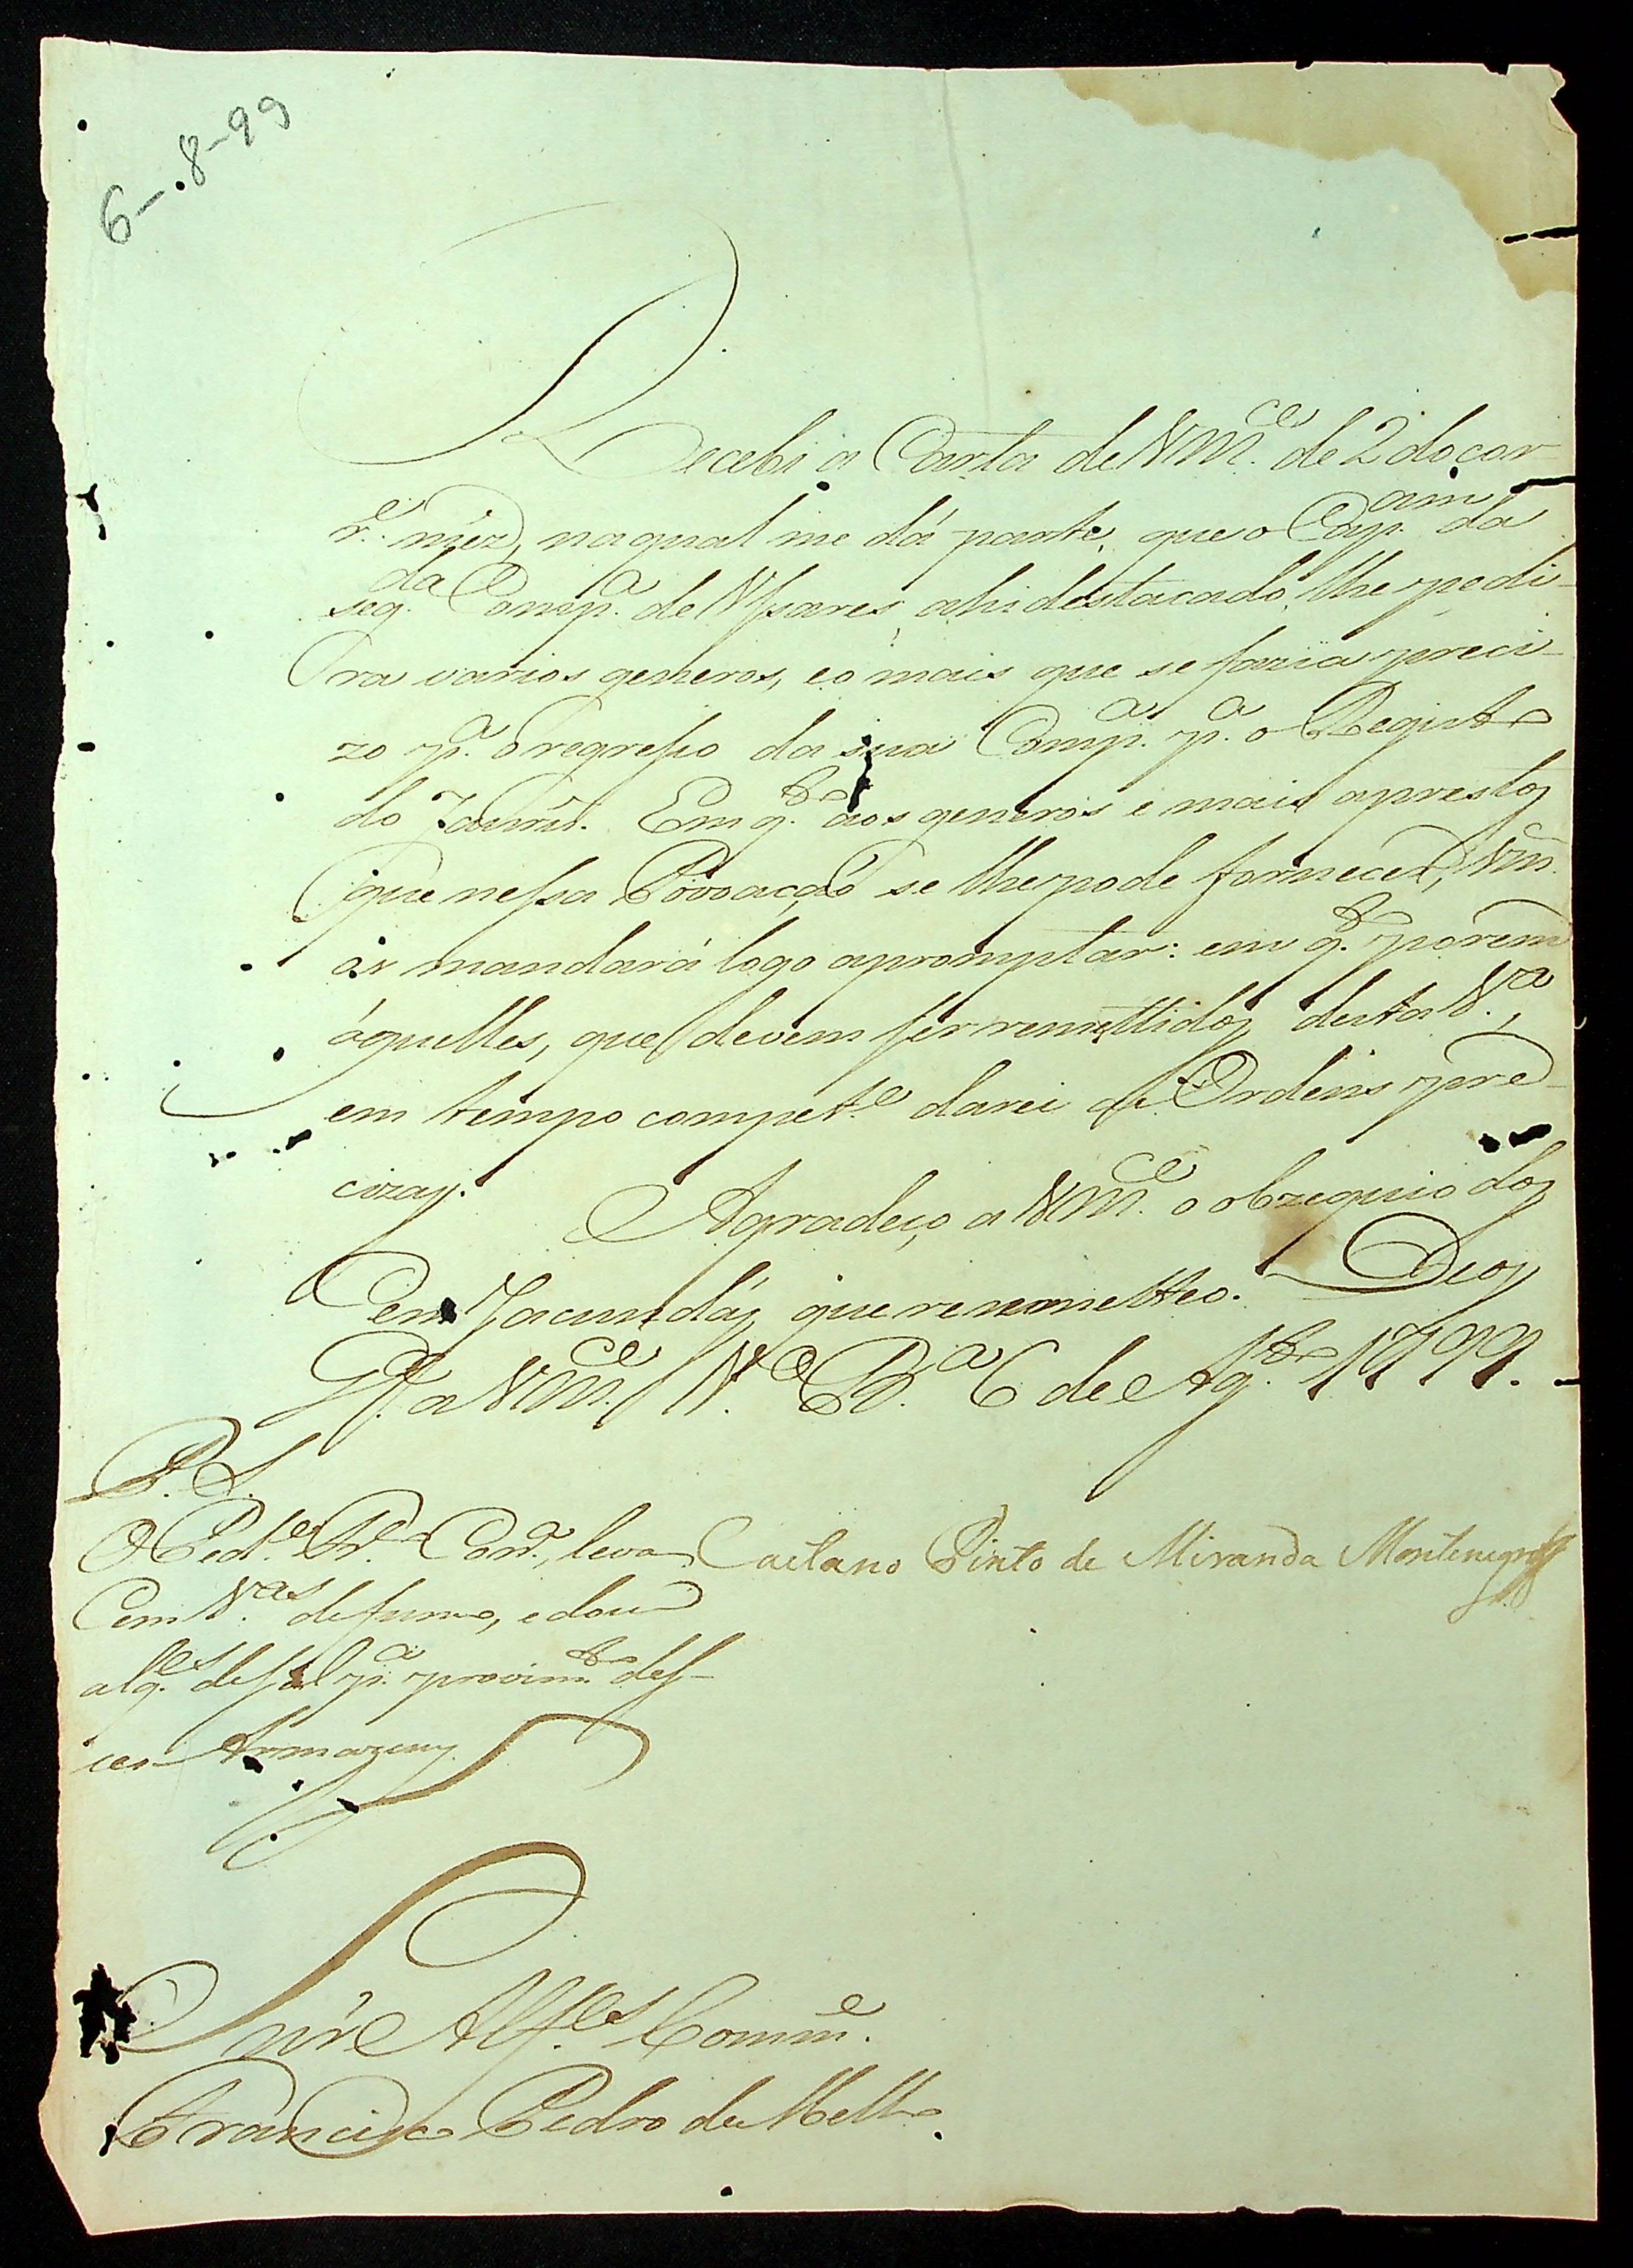 6-.8-99
Recebi a Carta de VM.ce de 2 do cor
r.e mez, na qual me dá parte, que o Cap.am da
seg.da Comp.a de Uſsares, ahi destacado, lhe pedi-
ra varios generos, e o mais que se fazia preci-
zo p.a o regreſso da sua Comp.a p.a o Registo
do Jaurú. Em q.to aos generos e mais aprestos
que neſsa Povoação se lhe pode fornecer, Vm.ce
os mandará logo apromptar: em q.to porem
áquelles, que devem ſer remettidos desta V.a,
em tempo compet.e darei as Ordens pre
cizas.
Agradeço a VM.ce o obzequio dos
Cem Jacundás, que rememetteo. Deos
G.e a VM.ce V.a B.a 6 de Ag.to 1799.
P.S.
O Ped.e Cord.o, leva
Cem V.as de fumo, e dous
alq.es de ſal p.a provim.to deſ-
ces Armazens.
Caetano Pinto de Miranda Montenegro
Snr Alf.es Comm.e
Francisco Pedro de Mello.